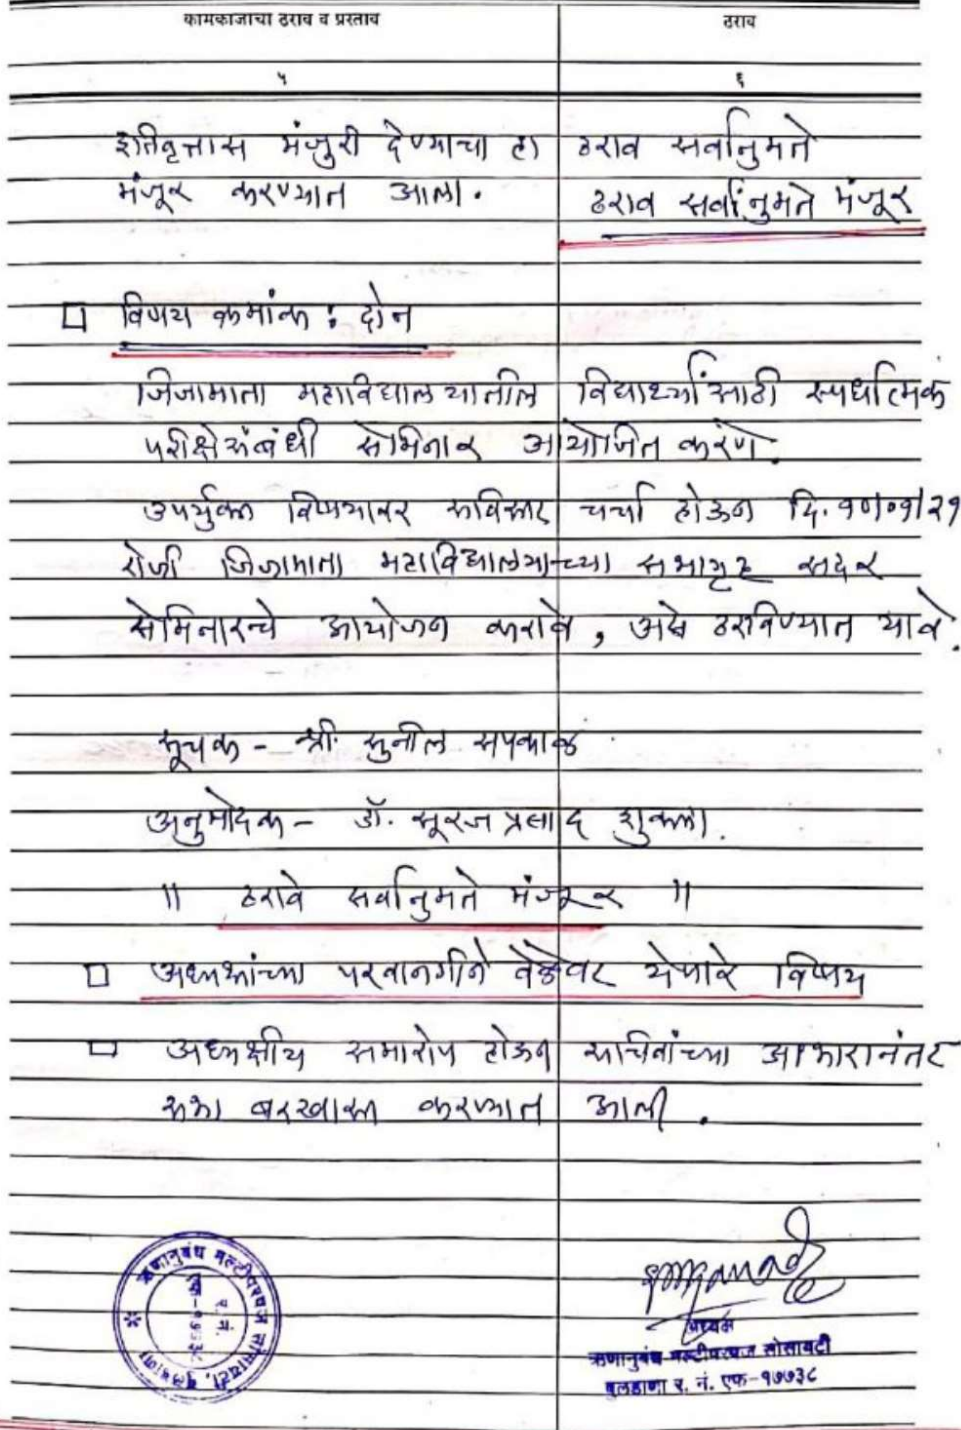 कामकाजाचा ठराव व प्रस्ताव ठराव
५ ६
इतिवृत्तास मंजुरी देण्याचा हा ठराव सर्वानुमते
मंजूर करण्यात आला.
ठराव सर्वांनुमते मंजूर
□ विषय क्रमांक : दोन
जिजामाता महाविद्यालयातील विद्यार्थ्यांसाठी स्पर्धात्मक
परीक्षेसंबंधी सेमिनार आयोजित करणे.
उपर्युक्त विषयावर सविस्तर चर्चा होऊन दि. १०/०१/२१
रोजी जिजामाता महाविद्यालयाच्या सभागृह सदर
सेमिनारचे आयोजन करावे, असे ठरविण्यात यावे.
सूचक - श्री. सुनील सपकाळ
अनुमोदक - डॉ. सूरज प्रसाद शुक्ला.
॥ ठराव सर्वानुमते मंजूर ॥
□ अध्यक्षांच्या परवानगीने वेळेवर येणारे विषय
□ अध्यक्षीय समारोप होऊन सचिवांच्या आभारानंतर
सभा बरखास्त करण्यात आली.
ऋणानुबंध मल्टीपरपज सोसायटी, बुलडाणा
र. नं.
एफ-१७७३८
अध्यक्ष
ऋणानुबंध मल्टीपरपज सोसायटी
बुलडाणा र. नं. एफ-१७७३८